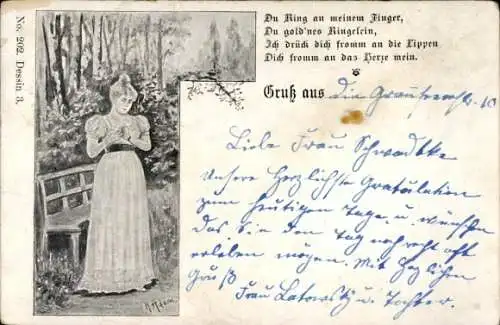 No. 202. Dessin 3.
Du Ring an meinem Finger,
Du gold'nes Ringelein,
Ich drück dich fromm an die Lippen
Dich fromm an das Herze mein.
Gruß aus
Liebe Frau Schwadtke
Unsere Herzlichste Gratulation
zum heutigen Tage u. wünschen
das Sie den Tag noch recht oft
erleben mögen. Mit Herzlichen
Gruß
Frau Latowsky u. Tochter.